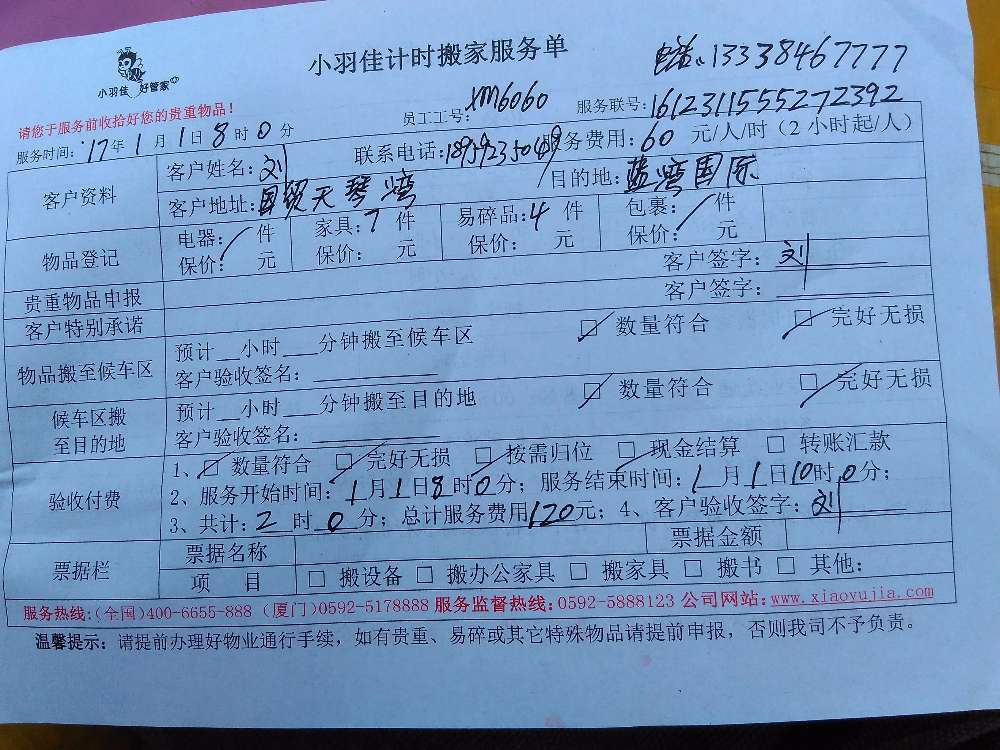 小羽佳 好管家
小羽佳计时搬家服务单
电话:13338467777
请您于服务前收拾好您的贵重物品!
员工工号: XM6060
服务联号:1612311555272392
服务时间:17年1月1日8时0分
联系电话:18959235049 服务费用:60元/人/时(2小时起/人)
客户资料 客户姓名:刘
客户地址:国贸天琴湾 目的地:蓝湾国际
物品登记 电器:/件 家具:7件 易碎品:4件 包裹:/件
保价: 元 保价: 元 保价: 元 保价: 元
贵重物品申报 客户签字:刘
客户特别承诺 客户签字:
物品搬至候车区 预计__小时___分钟搬至候车区 ☑ 数量符合 ☑ 完好无损
客户验收签名:
候车区搬至目的地 预计__小时___分钟搬至目的地 ☑ 数量符合 ☑ 完好无损
客户验收签名:
验收付费 1、☑ 数量符合 ☑ 完好无损 ☑ 按需归位 ☑ 现金结算 □ 转账汇款
2、服务开始时间:1月1日8时0分;服务结束时间:1月1日10时0分;
3、共计:2时0分;总计服务费用120元;4、客户验收签字:刘
票据栏 票据名称 票据金额
项 目 □ 搬设备 □ 搬办公家具 □ 搬家具 □ 搬书 □ 其他:
服务热线:(全国)400-6655-888 (厦门)0592-5178888 服务监督热线:0592-5888123 公司网站:www.xiaoyujia.com
温馨提示:请提前办理好物业通行手续,如有贵重、易碎或其它特殊物品请提前申报,否则我司不予负责。